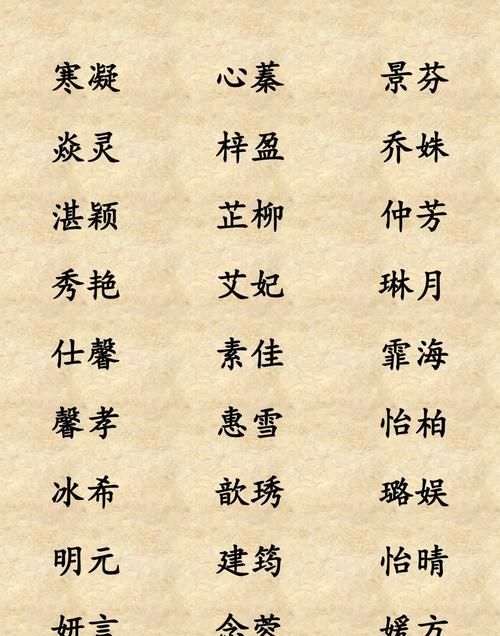 寒凝 心蓁 景芬
焱灵 梓盈 乔姝
湛颖 芷柳 仲芳
秀艳 艾妃 琳月
仕馨 素佳 霏海
馨孝 惠雪 怡柏
冰希 歆琇 璐娱
明元 建筠 怡晴
妍言 念蓉 媛方